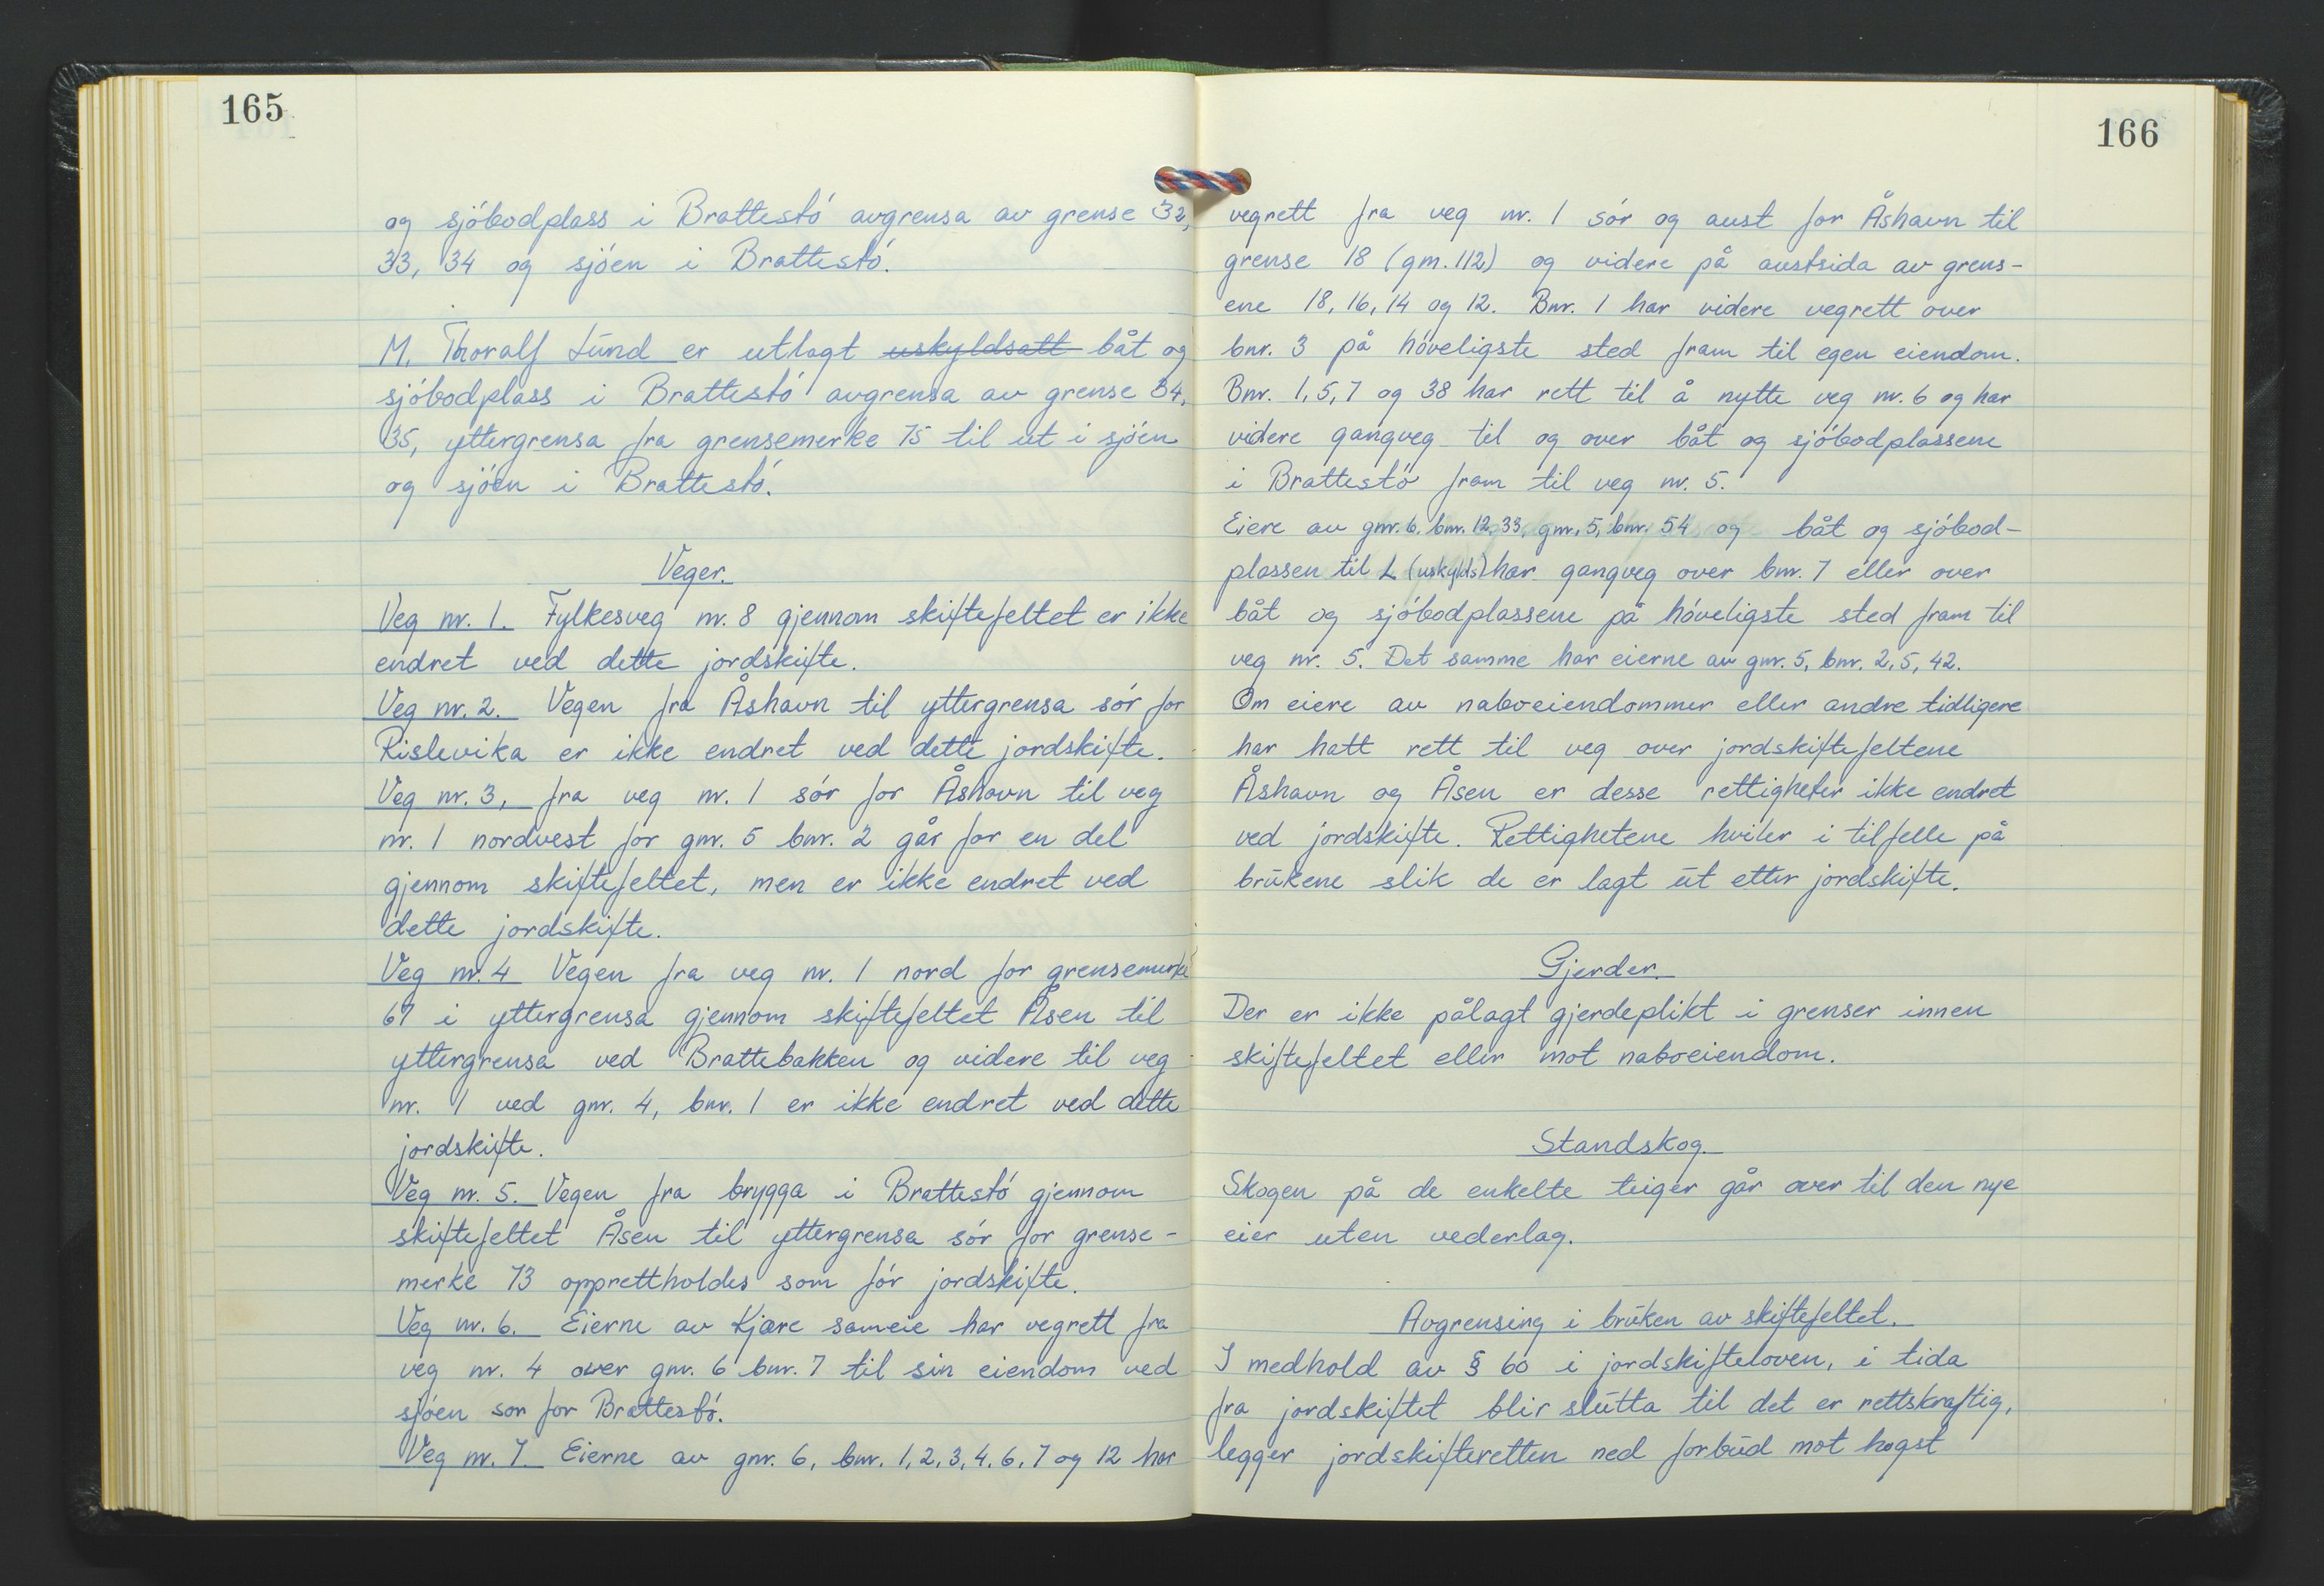 165
og sjóbodplass i Brattestó avgrensa av grense 32,
33, 34 og sjóen i Brattestó.
M. Thoralf Lund er utlagt uskyldsatt båt og
sjóbodplass i Brattestó avgrensa av grense 34,
35, yttergrensa fra grensemerke 75 til ut i sjóen
og sjóen i Brattestó.
Veger.
Veg nr. 1. Fylkesveg nr. 8 gjennom skiftefeltet er ikke
endret ved dette jordskifte.
Veg nr. 2. Vegen fra Åshavn til yttergrensa sór for
Rislevika er ikke endret ved dette jordskifte.
Veg nr. 3, fra veg nr. 1 sór for Åshavn til veg
nr. 1 nordvest for gnr. 5 bnr. 2 går for en del
gjennom skiftefeltet, men er ikke endret ved
dette jordskifte.
Veg nr. 4 Vegen fra veg nr. 1 nord for grensemerke
67 i yttergrensa gjennom skiftefeltet Åsen til
yttergrensa ved Brattebakken og videre til veg
nr. 1 ved gnr. 4, bnr. 1 er ikke endret ved dette
jordskifte.
Veg nr. 5. Vegen fra brygga i Brattestó gjennom
skiftefeltet Åsen til yttergrensa sór for grense-
merke 73 opprettholdes som fór jordskifte.
Veg nr. 6. Eierne av Kjære sameie har vegrett fra
veg nr. 4 over gnr. 6 bnr. 7 til sin eiendom ved
sjóen sor for Brattestó.
Veg nr. 7. Eierne av gnr. 6, bnr. 1, 2, 3, 4, 6, 7 og 12 har
166
vegrett fra veg nr. 1 sór og aust for Åshavn til
grense 18 (gm. 112) og videre på austsida av grens-
ene 18, 16, 14 og 12. Bnr. 1 har videre vegrett over
bnr. 3 på hóveligste sted fram til egen eiendom.
Bnr. 1, 5, 7 og 38 har rett til å nytte veg nr. 6 og har
videre gangveg til og over båt og sjóbodplassene
i Brattestó fram til veg nr. 5.
Eiere av gnr. 6. bnr. 12, 33, gnr. 5, bnr. 54 og båt og sjóbod-
plassen til L (uskylds) har gangveg over bnr. 7 eller over
båt og sjóbodplassene på hóveligste sted fram til
veg nr. 5. Det samme har eierne av gnr. 5, bnr. 2, 5, 42.
Om eiere av naboeiendommer eller andre tidligere
har hatt rett til veg over jordskiftefeltene
Åshavn og Åsen er desse rettigheter ikke endret
ved jordskifte. Rettighetene hviler i tilfelle på
brukene slik de er lagt ut etter jordskifte.
Gjerder.
Der er ikke pålagt gjerdeplikt i grenser innen
skiftefeltet eller mot naboeiendom.
Standskog.
Skogen på de enkelte teiger går over til den nye
eier uten vederlag.
Avgrensing i bruken av skiftefeltet.
I medhold av § 60 i jordskifteloven, i tida
fra jordskiftet blir slutta til det er rettskraftig,
legger jordskifteretten ned forbud mot hogst